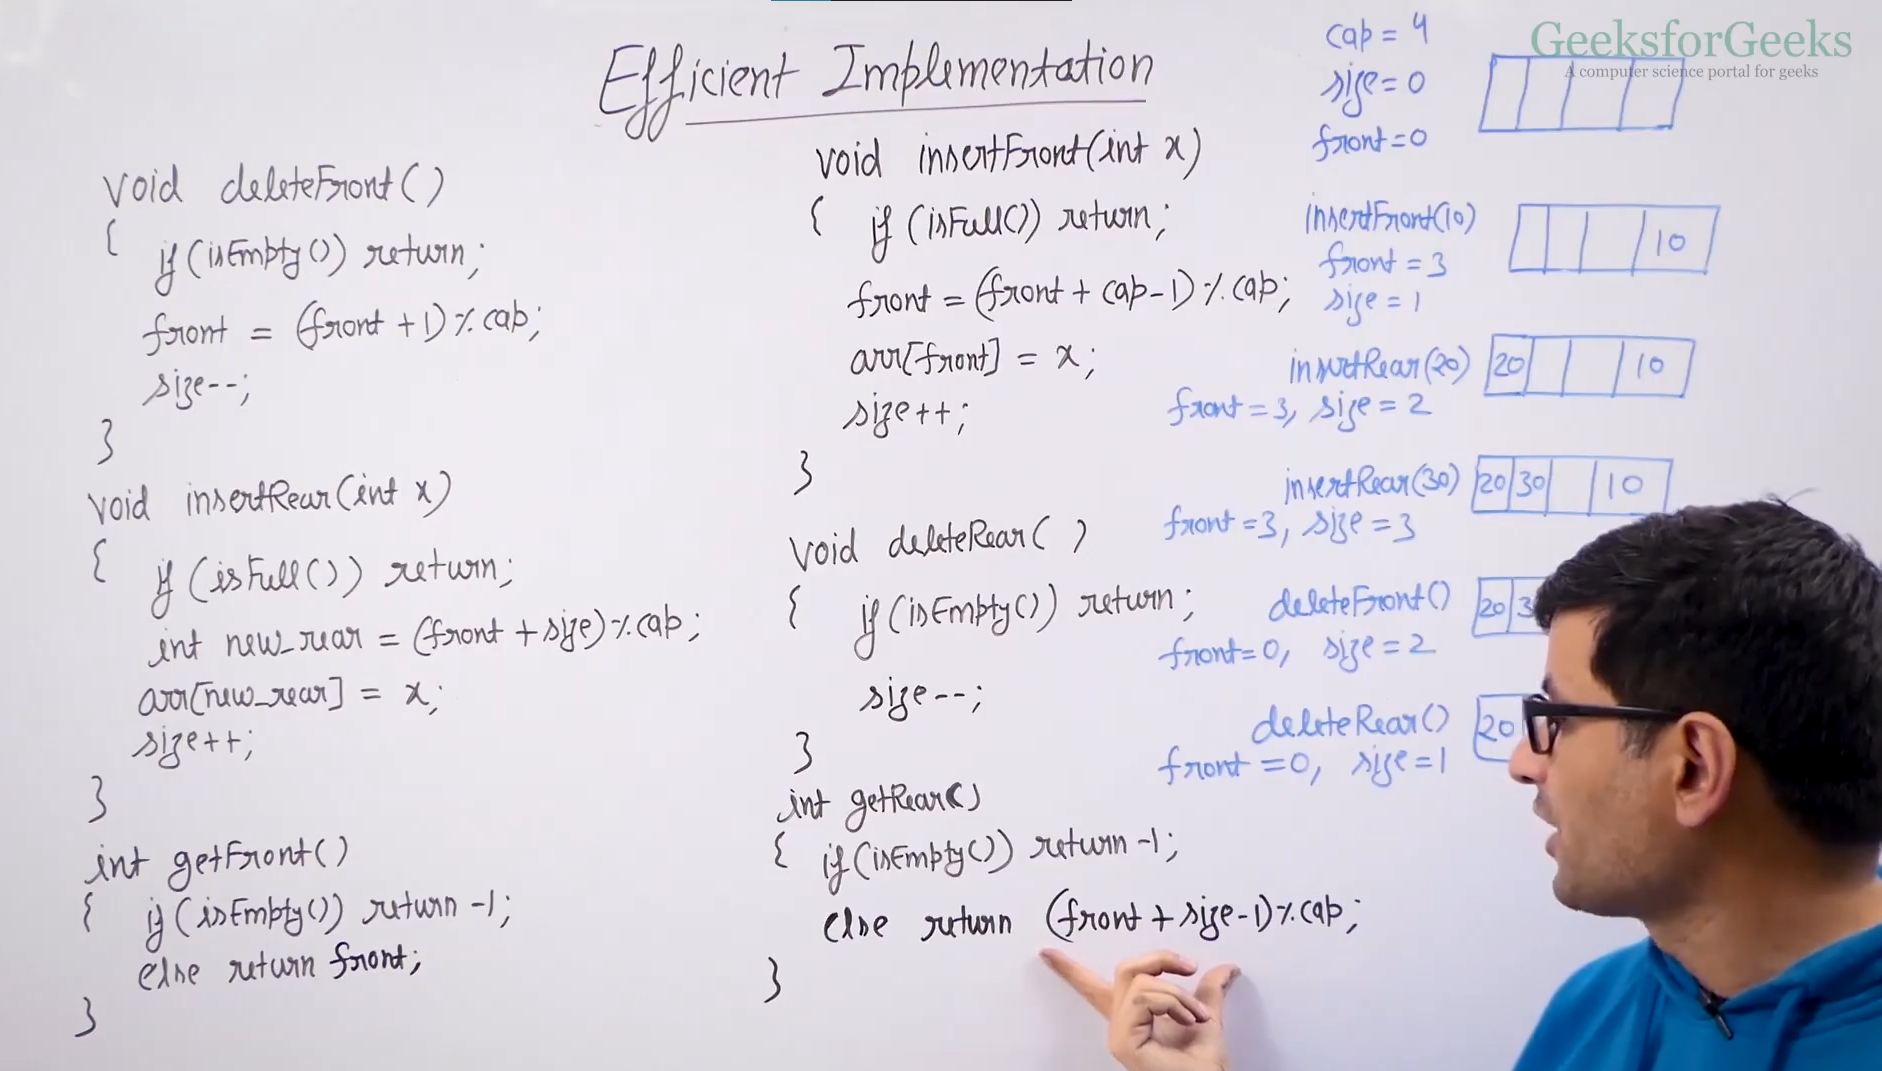 GeeksforGeeks
A computer science portal for geeks
Efficient Implementation
void deleteFront()
{ if (isEmpty()) return;
front = (front +1) % cap;
size--;
}
void insertRear(int x)
{ if (isFull()) return;
int new_rear = (front + size) % cap;
arr[new_rear] = x;
size++;
}
int getFront()
{ if (isEmpty()) return -1;
else return front;
}
void insertFront(int x)
{ if (isFull()) return;
front = (front + cap-1) % cap;
arr[front] = x;
size++;
}
void deleteRear( )
{ if (isEmpty()) return;
size--;
}
int getRear()
{ if (isEmpty()) return -1;
else return (front + size-1) % cap;
}
cap = 4
size = 0
front=0
insertFront(10)
10
front = 3
size = 1
insertRear(20)
20 10
front = 3, size = 2
insertRear(30)
20 30 10
front =3, size =3
deleteFront()
20 3
front=0, size = 2
deleteRear()
20
front =0, size =1